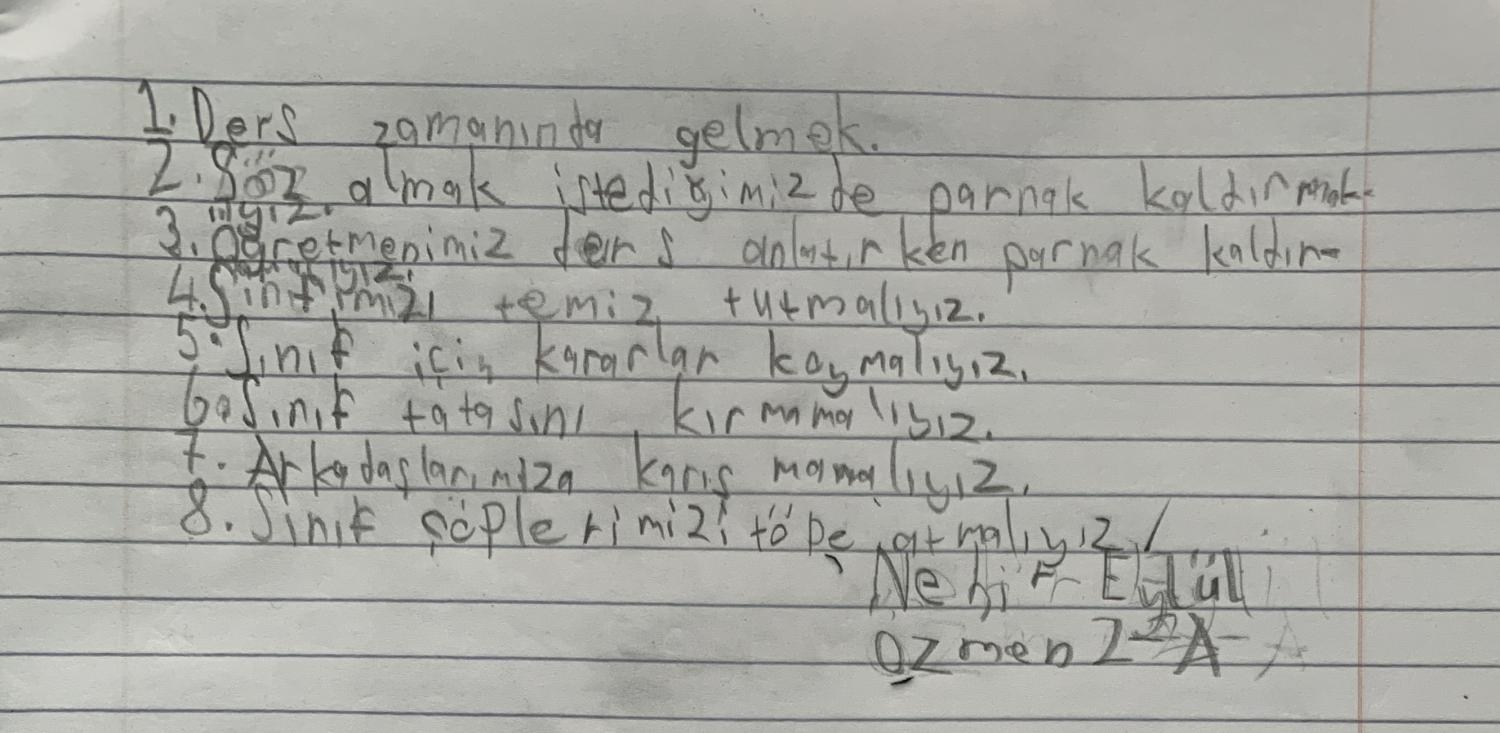 1. Ders zamanında gelmek.
2. Söz almak istediğimizde parnak kaldırmak-
ıyız.
3. Öğretmenimiz ders anlatırken parnak kaldır-
4. Sınıfımızı temiz tutmalıyız.
5. Sınıf için kararlar koymalıyız.
6. Sınıf tatasını kırmamalıyız.
7. Arkadaşlarımıza karış mamalıyız.
8. Sınıf şöplerimizi töpe atmalıyız
Nehir Eylül
Özmen 2-A